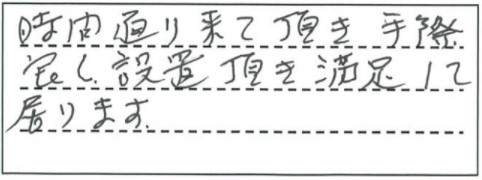 時間通り来て頂き手際
良く設置頂き満足して
居ります